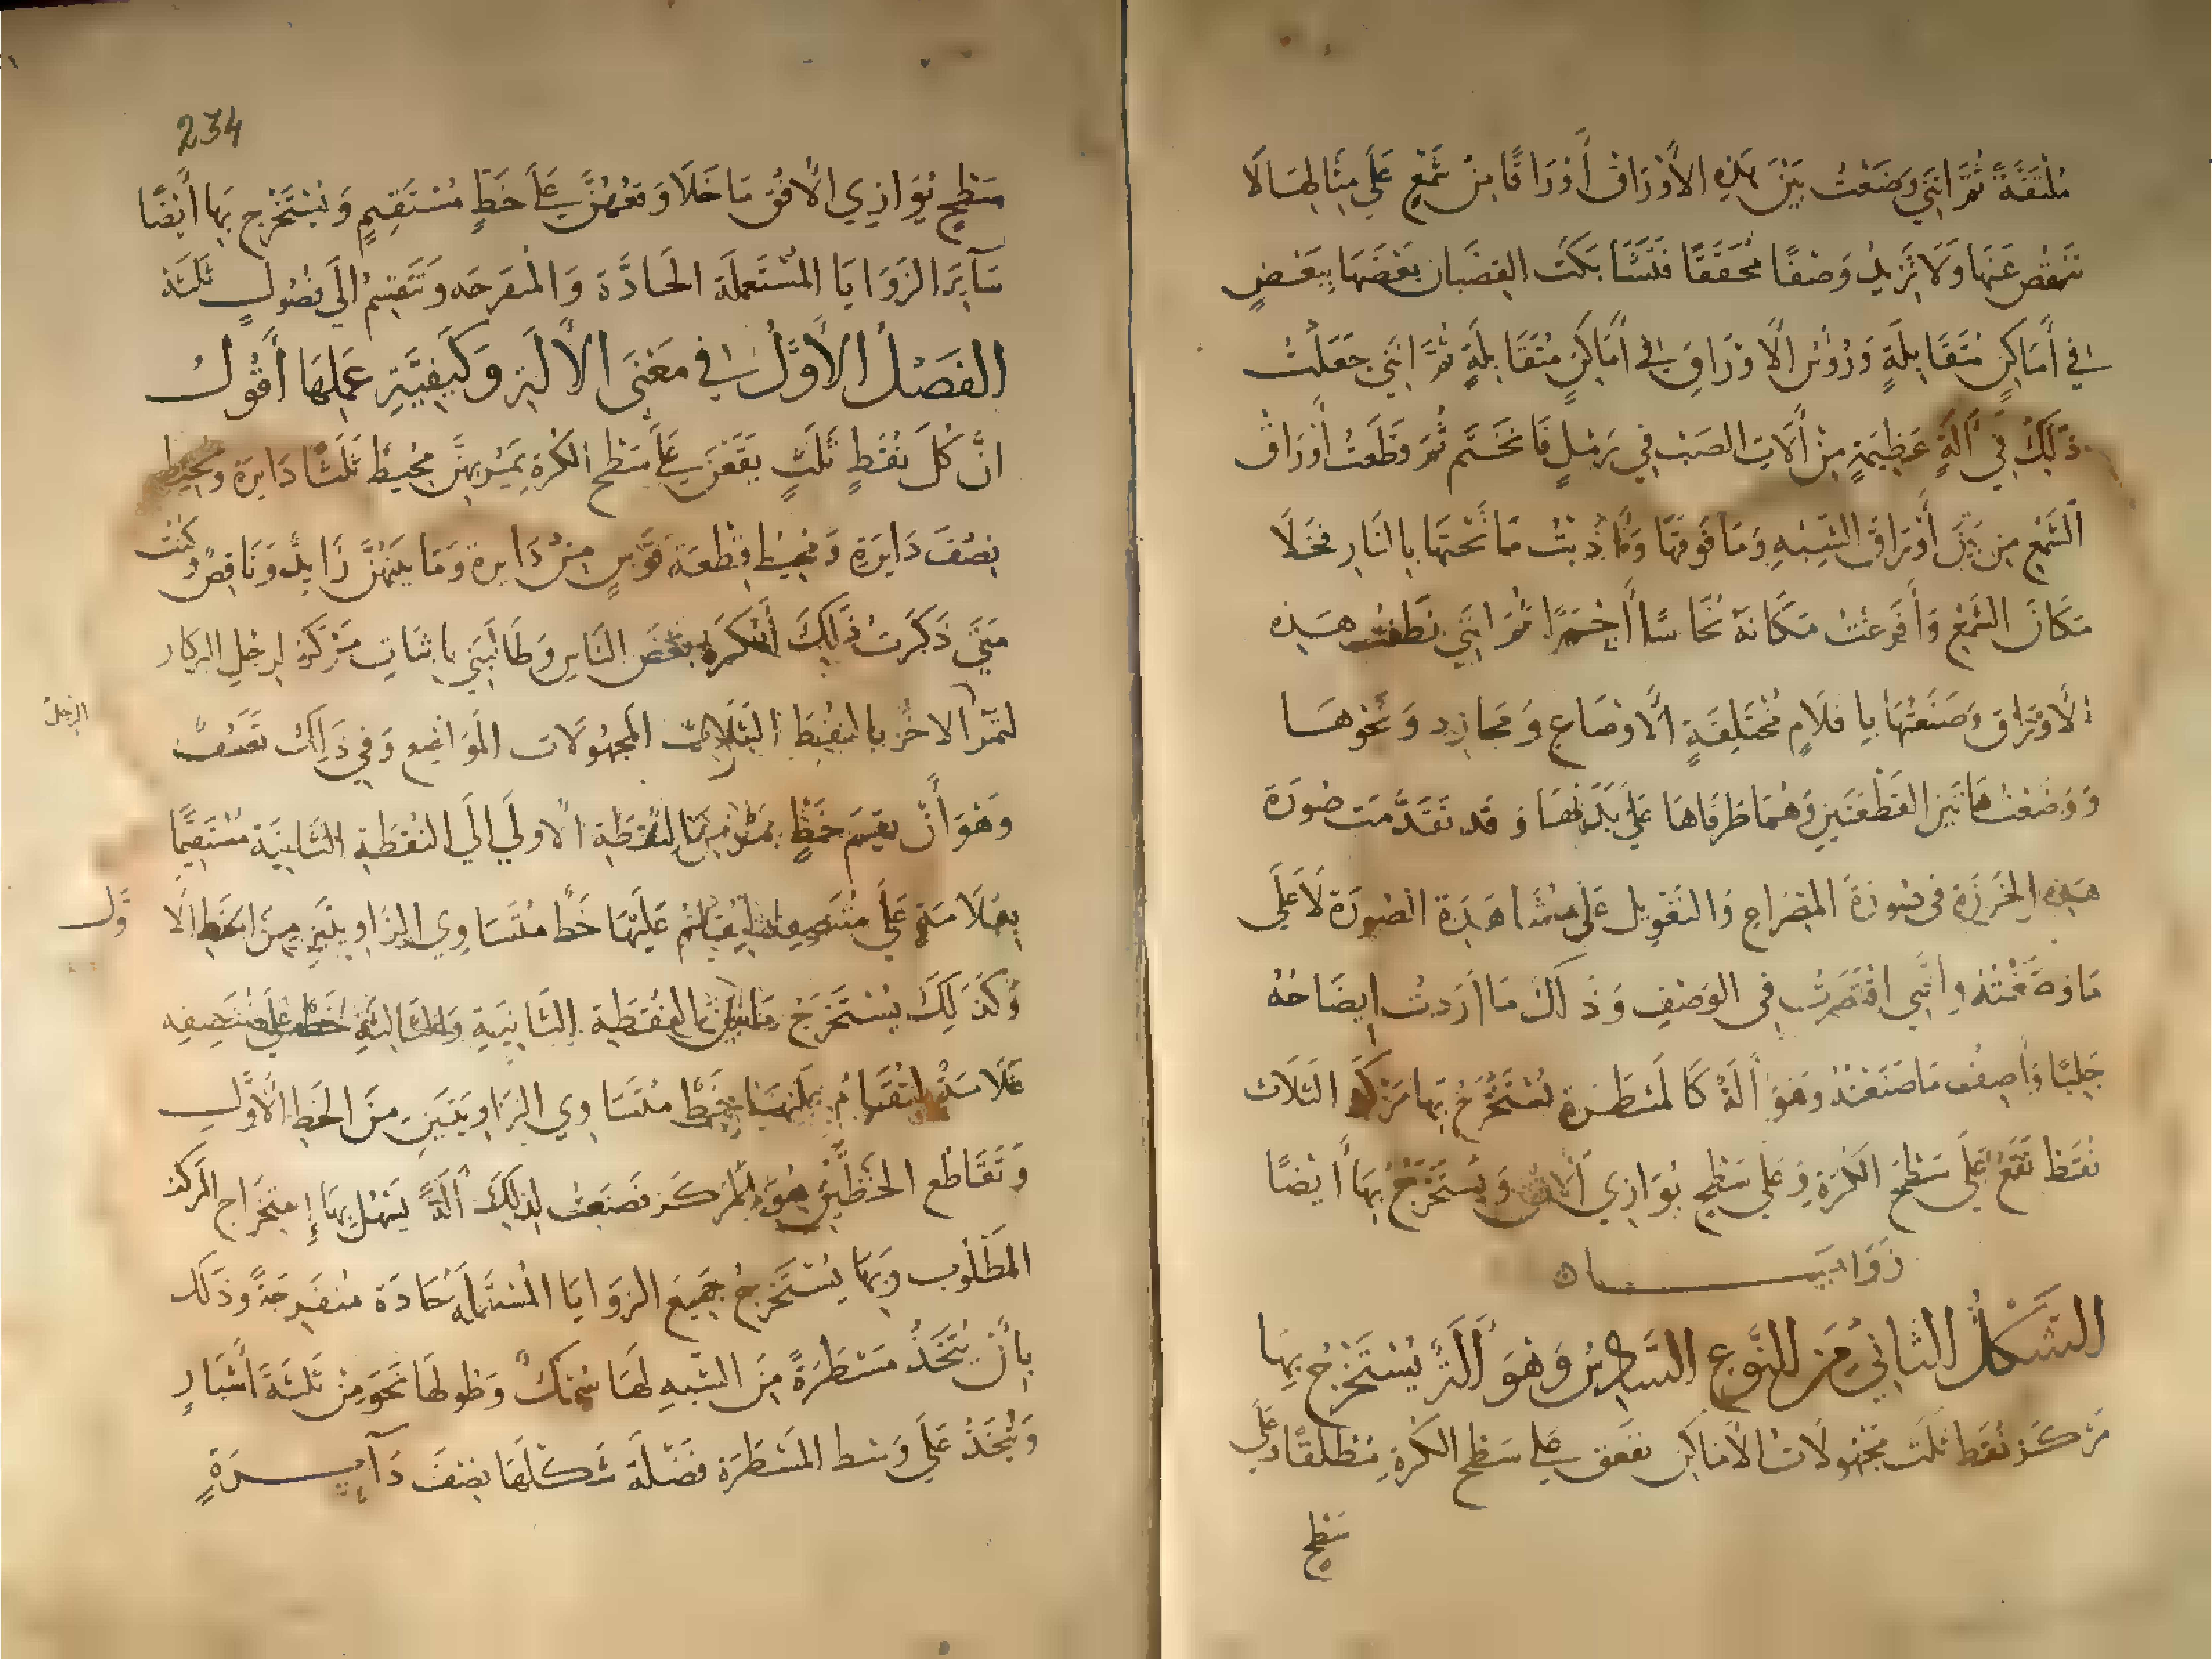 ملتفة ثم انني وضعت بين هذه الأوراق أوراقا من شمع على مثالها لا
تنقص عنها ولا تزيد وصفا محققا فتشابكت القضبان بعضها ببعض
في أماكن متقابلة ورؤس الأوراق في أماكن متقابلة ثم انني جعلت
ذلك في آلة عظيمة من ألات الصب في رمل فانختم ثم وقطعت أوراق
الشمع من بين أوراق الشبه وما فوقها وما تحتها بالنار فخلا
مكان الشمع وأفرغت مكانه نحاسا أحمرا ثم انني نظفت هذه
الأوراق وصنعتها باقلام مختلفة الأوضاع ومجارد ونحوها
ووضعت هاتين القطعتين وهما طرفاها على بدنها وقد تقدمت صورة
هذه الخرزة في صورة المصراع والتعويل على مشاهدة الصورة لا على
ما وصفته وانني اقتصرت في الوصف وذلك ما اردت ايضاحه
جليا وأصف ما صنعته وهو آلة كالمسطرة يستخرج بها مركز الثلاث
نقط تقع على سطح الكرة وعلى سطح يوازي الأفق ويستخرج بها أيضا
زوايا ه
الشكل الثاني من النوع السادس وهو ألة يستخرج بها
مركز نقط ثلث مجهولات الأماكن تقعن على سطح الكرة مطلقا وعلى
سطح
234
سطح يوازي الأفق ما خلا وقعهن على خط مستقيم ويستخرج بها أيضا
سآير الزوايا المستعملة الحادة والمنفرجه وتنقسم الى فصول ثلثة
الفصل الأول في معنى الألة وكيفية عملها أقول
ان كل نقط ثلث يقعن على سطح الكرة يمر بهن محيط ثلثا دايرة ومحيط
نصف دايرة ومحيط قطعة قوس من دايرة وما بينهن زايد وناقص وكنت
متى ذكرت ذلك أنكره بعض الناس وطالبني باثبات مركزة لرجل البركار
الرجل
لتمر الاخر بالنقط الثلاث المجهولات المواضع وفي ذلك تعسف
وهو أن يقيم خط يمر من النقطة الاولي الي النقطة الثانية مستقيما
بعلامة على منتصفه ليقام عليها خط متساوي الزاويتين من الخط الا
ول
وكذلك يستخرج ما بين النقطة الثانية والثالثة خط على منتصفه
علامة ليقام عليها خط متساوي الزاويتين من الخط الأول
وتقاطع الخطين هو المركز فصنعت لذلك ألة يسهل بها إستخراج المركز
المطلوب وبها يستخرج جميع الزوايا المستعمله حادة منفرجة وذلك
بأن يتخذ مسطرة من الشبه لها سمك وطولها نحو من ثلثة أشبار
ويتخذ على وسط المسطرة فضلة شكلها نصف دآيرة